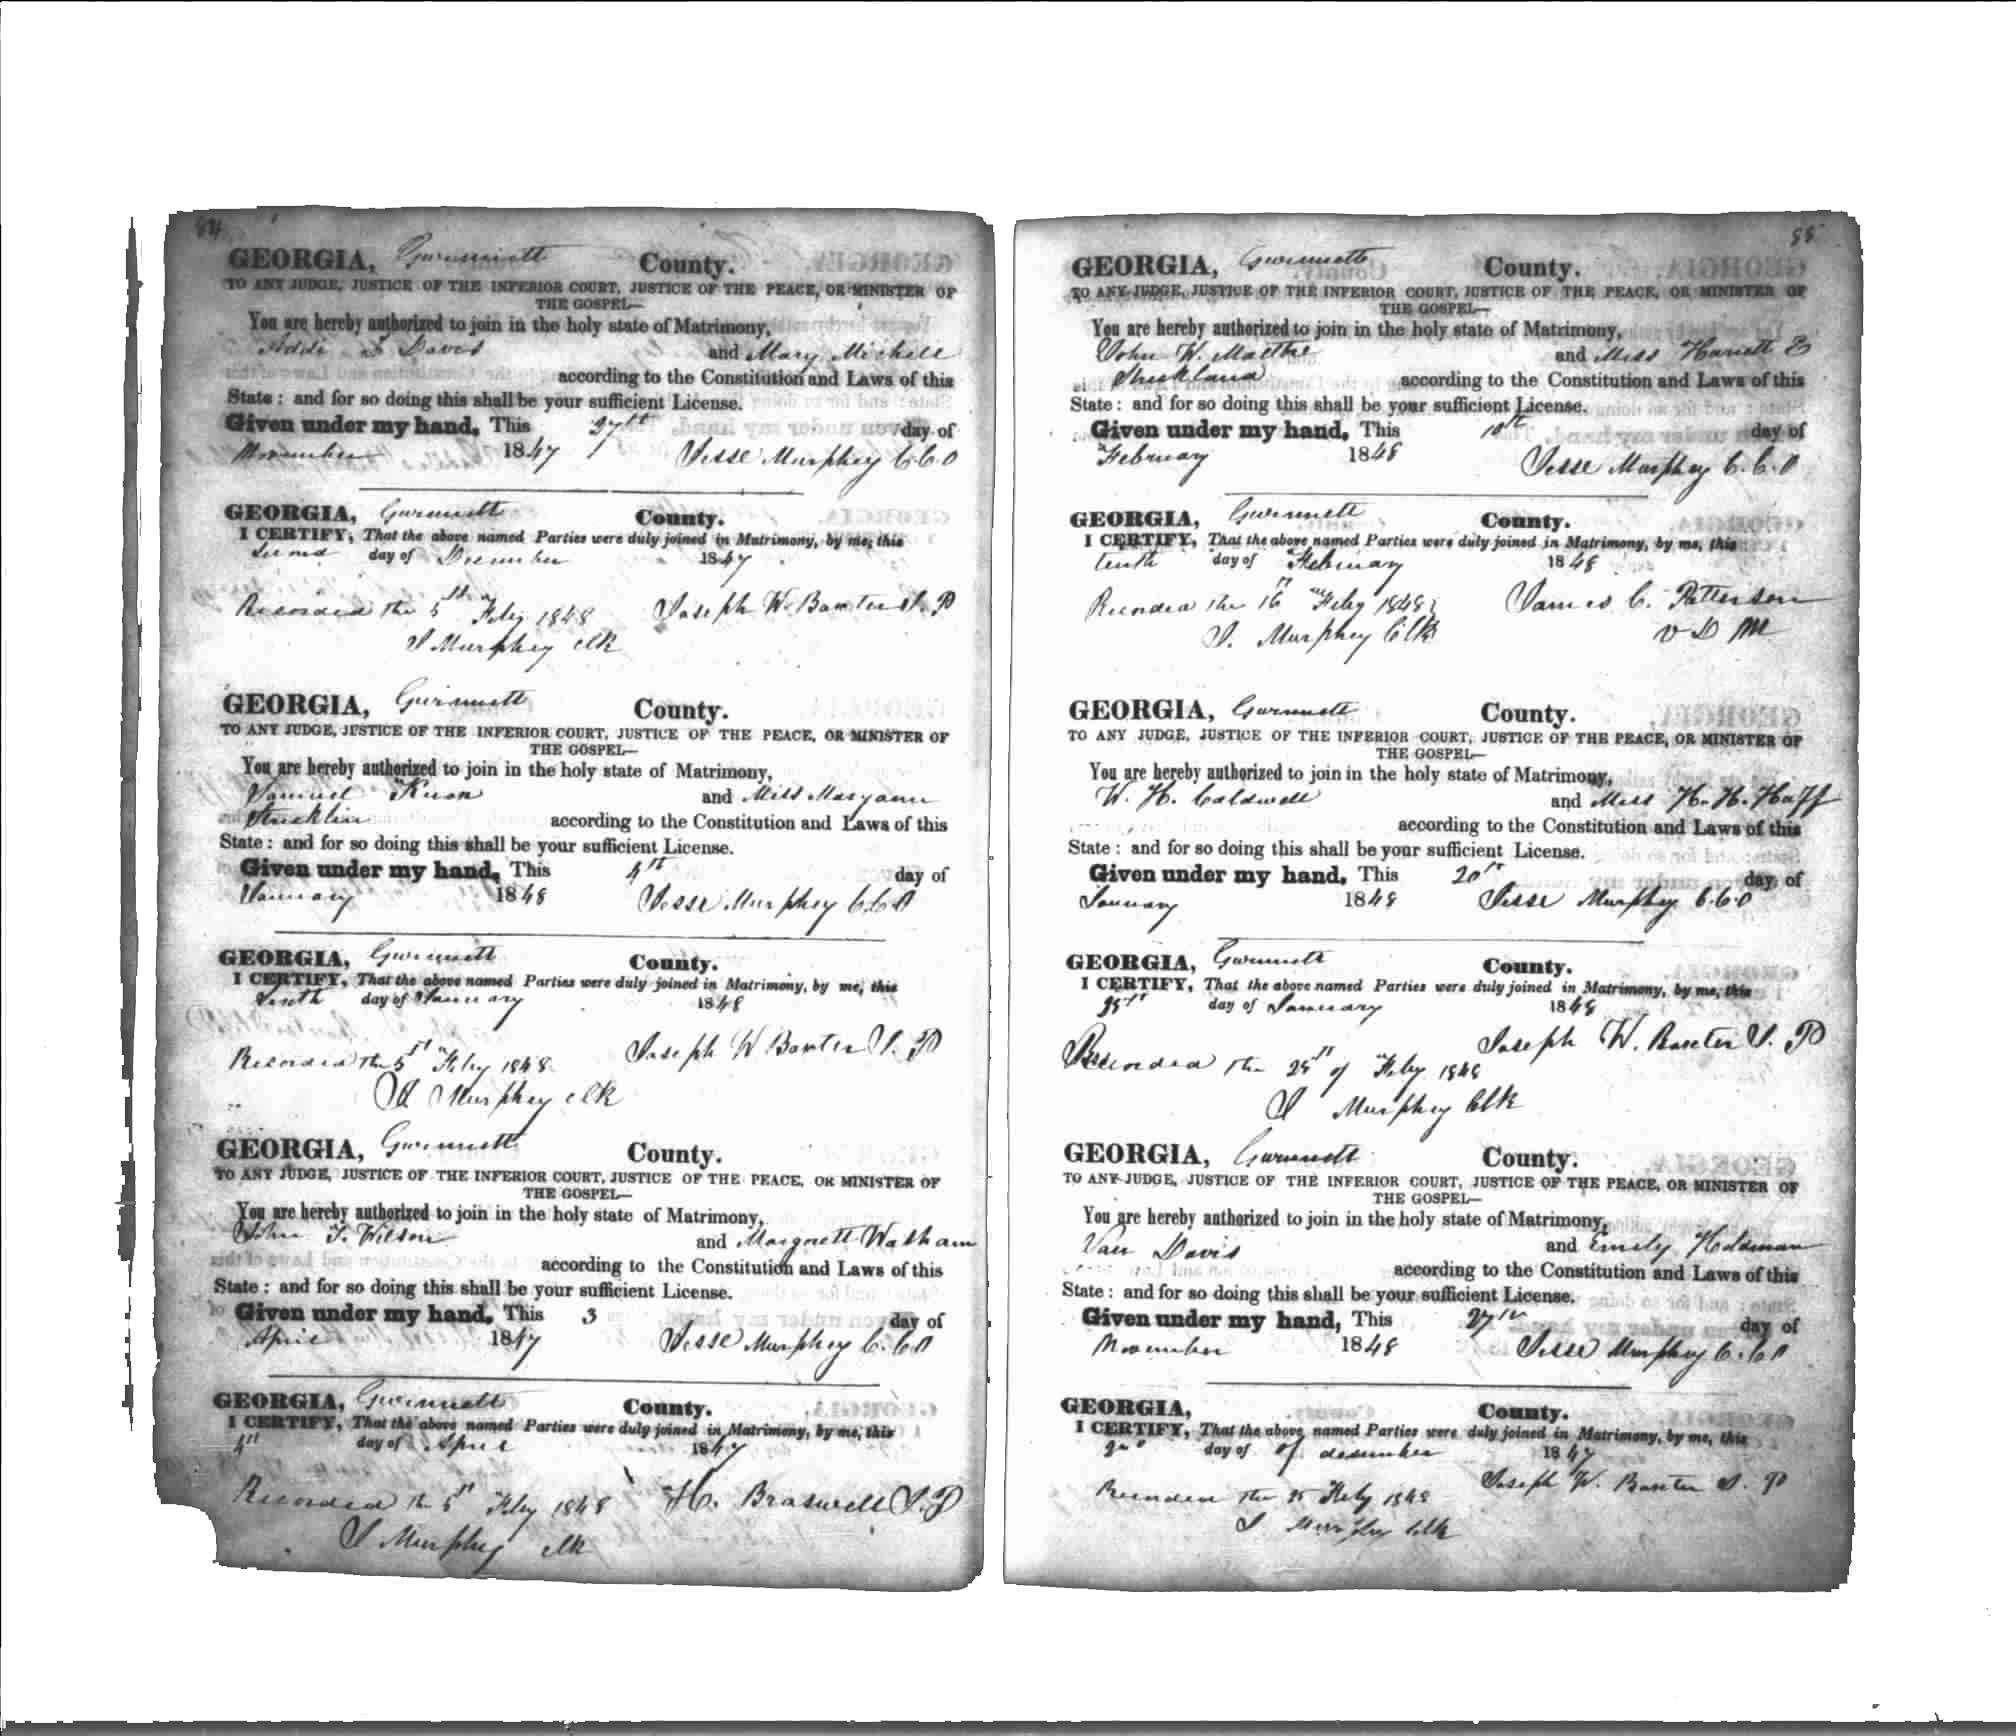 84
GEORGIA, Gwinnett County.
TO ANY JUDGE, JUSTICE OF THE INFERIOR COURT, JUSTICE OF THE PEACE, OR MINISTER OF
THE GOSPEL—
You are hereby authorized to join in the holy state of Matrimony,
Davis and Mary Michell
according to the Constitution and Laws of this
State: and for so doing this shall be your sufficient License.
Given under my hand, This 27th day of
November 1847 Jesse Murphey C.C.O
GEORGIA, Gwinnett County.
I CERTIFY, That the above named Parties were duly joined in Matrimony, by me, this
second day of December 1847
Recorded the 5th Feby 1848 Joseph W. Baxter J. P
J Murphey clk
GEORGIA, Gwinnett County.
TO ANY JUDGE, JUSTICE OF THE INFERIOR COURT, JUSTICE OF THE PEACE, OR MINISTER OF
THE GOSPEL—
You are hereby authorized to join in the holy state of Matrimony,
Samuel Knox and Miss Maryann
Stricklin according to the Constitution and Laws of this
State: and for so doing this shall be your sufficient License.
Given under my hand, This 4th day of
January 1848 Jesse Murphey C.C.O
GEORGIA, Gwinnett County.
I CERTIFY, That the above named Parties were duly joined in Matrimony, by me, this
day of January 1848
Recorded the 5th Feby 1848 Joseph W Baxter J. P
J Murphey clk
GEORGIA, Gwinnett County.
TO ANY JUDGE, JUSTICE OF THE INFERIOR COURT, JUSTICE OF THE PEACE, OR MINISTER OF
THE GOSPEL—
You are hereby authorized to join in the holy state of Matrimony,
John T. Wilson and Margrett Watham
according to the Constitution and Laws of this
State: and for so doing this shall be your sufficient License.
Given under my hand, This 3 day of
April 1847 Jesse Murphey C.C.O
GEORGIA, Gwinnett County.
I CERTIFY, That the above named Parties were duly joined in Matrimony, by me, this
4th day of April 1847
Recorded the 5th Feby 1848 H. Braswell J.P
J Murphey clk
85
GEORGIA, Gwinnett County.
TO ANY JUDGE, JUSTICE OF THE INFERIOR COURT, JUSTICE OF THE PEACE, OR MINISTER OF
THE GOSPEL—
You are hereby authorized to join in the holy state of Matrimony,
John W. and Miss Hariett E
Strickland according to the Constitution and Laws of this
State: and for so doing this shall be your sufficient License.
Given under my hand, This 10th day of
February 1848 Jesse Murphey C.C.O
GEORGIA, Gwinnett County.
I CERTIFY, That the above named Parties were duly joined in Matrimony, by me, this
tenth day of February 1848
Recorded the 16th Feby 1848 James C. Patterson
J. Murphey Clk V D M
GEORGIA, Gwinnett County.
TO ANY JUDGE, JUSTICE OF THE INFERIOR COURT, JUSTICE OF THE PEACE, OR MINISTER OF
THE GOSPEL—
You are hereby authorized to join in the holy state of Matrimony,
W. H. Caldwell and Miss H. H. Huff
according to the Constitution and Laws of this
State: and for so doing this shall be your sufficient License.
Given under my hand, This 20th day of
January 1848 Jesse Murphey C.C.O
GEORGIA, Gwinnett County.
I CERTIFY, That the above named Parties were duly joined in Matrimony, by me, this
25th day of January 1848
Recorded the 25th of Feby 1848 Joseph W. Baxter J. P
J Murphey Clk
GEORGIA, Gwinnett County.
TO ANY JUDGE, JUSTICE OF THE INFERIOR COURT, JUSTICE OF THE PEACE, OR MINISTER OF
THE GOSPEL—
You are hereby authorized to join in the holy state of Matrimony,
Van Davis and Emily Holdman
according to the Constitution and Laws of this
State: and for so doing this shall be your sufficient License.
Given under my hand, This 27th day of
November 1848 Jesse Murphey C.C.O
GEORGIA, County.
I CERTIFY, That the above named Parties were duly joined in Matrimony, by me, this
2nd day of of desember 1847
Recorded the 25 Feby 1848 Joseph W. Baxter J. P
J Murphey clk